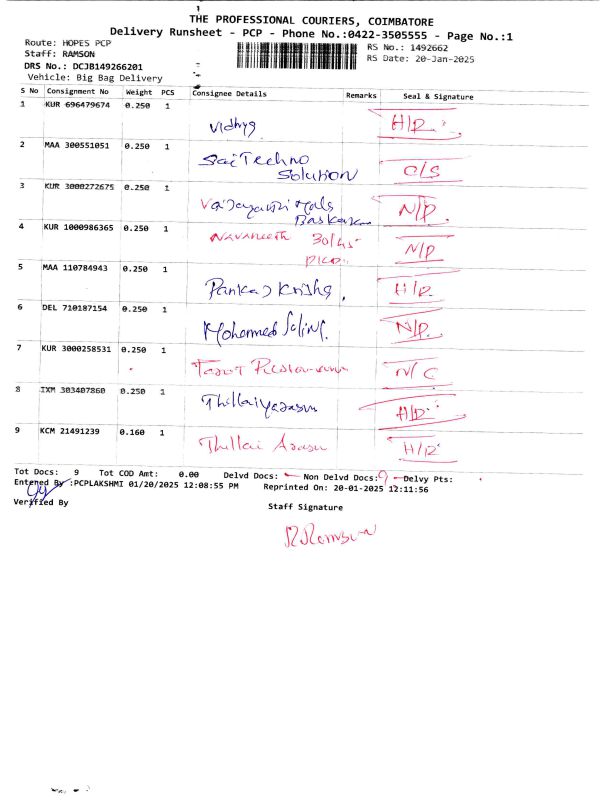 THE PROFESSIONAL COURIERS, COIMBATORE
Delivery Runsheet - PCP - Phone No.:0422-3505555 - Page No.:1
Route: HOPES PCP
RS No.: 1492662
Staff: RAMSON
RS Date: 20-Jan-2025
DRS No.: DCJB149266201
Vehicle: Big Bag Delivery
S No Consignment No Weight PCS Consignee Details Remarks Seal & Signature
1 KUR 696479674 0.250 1 Vidhya H/D
2 MAA 300551051 0.250 1 Sai Techno Solution O/S
3 KUR 3000272675 0.250 1 Baskaran N/D
4 KUR 1000986365 0.250 1 Navaneeth 30/45 N/D
5 MAA 110784943 0.250 1 Pankaj Krisha H/D
6 DEL 710187154 0.250 1 Mohammed Salim N/D
7 KUR 3000258531 0.250 1 N/C
8 IXM 303407860 0.250 1 Thillaiyarasu H/D
9 KCM 21491239 0.160 1 Thillai Arasu H/D
Tot Docs: 9 Tot COD Amt: 0.00 Delvd Docs: Non Delvd Docs: 9 Delvy Pts:
Entened By :PCPLAKSHMI 01/20/2025 12:08:55 PM Reprinted On: 20-01-2025 12:11:56
Verified By
Staff Signature
R.Ramson